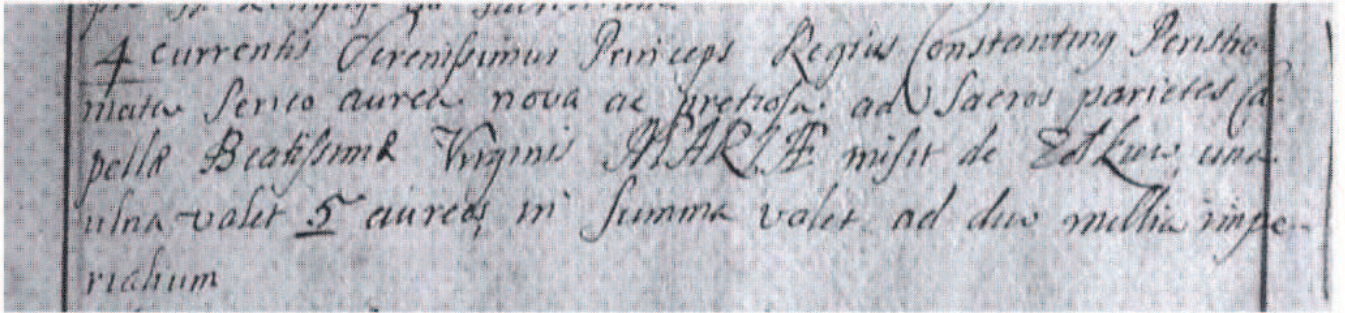 4 currentis Serenissimus Princeps Regius Constantinus Peristro-
mata Serico aurea nova ac pretiosa ad Sacros parietes Ca-
pellæ Beatissimæ Virginis MARIÆ misit de Zołkiew, una
ulna valet 5 aureos, in summa valet ad duo millia impe-
rialium